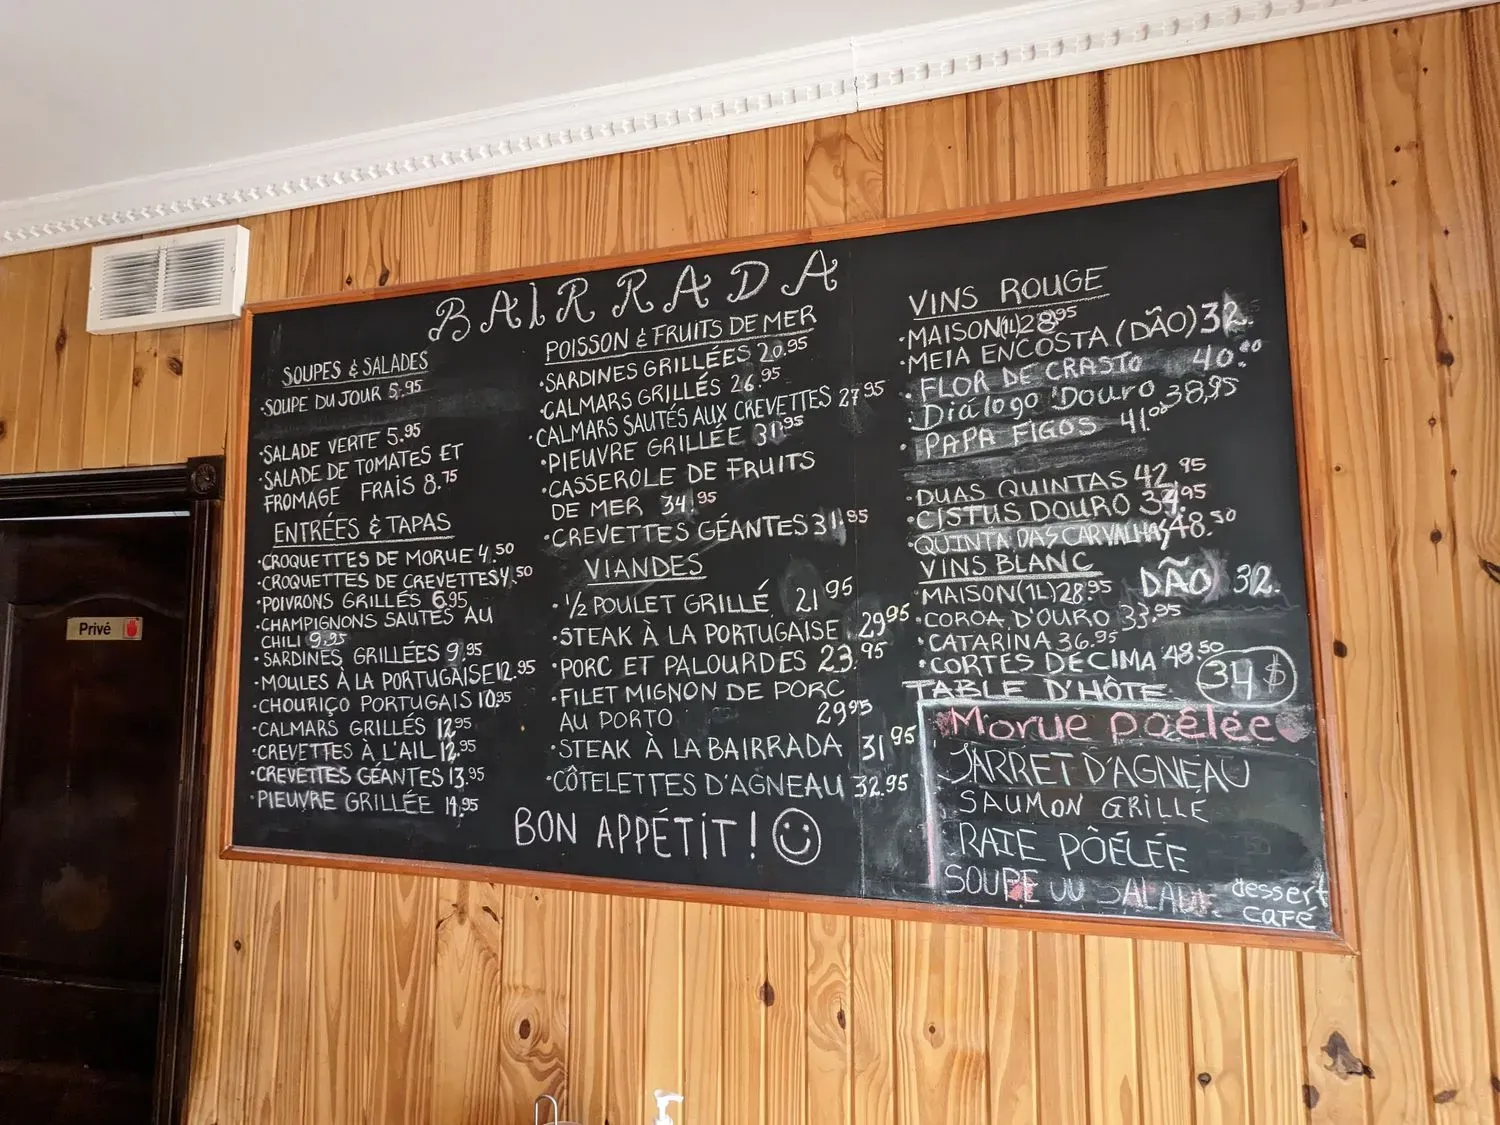 Privé
BAIRRADA
SOUPES & SALADES
·SOUPE DU JOUR 5.95
·SALADE VERTE 5.95
·SALADE DE TOMATES ET
FROMAGE FRAIS 8.75
ENTRÉES & TAPAS
·CROQUETTES DE MORUE 4.50
·CROQUETTES DE CREVETTES 4.50
·POIVRONS GRILLÉS 6.95
·CHAMPIGNONS SAUTÉS AU
CHILI 9.95
·SARDINES GRILLÉES 9.95
·MOULES À LA PORTUGAISE 12.95
·CHOURIÇO PORTUGAIS 10.95
·CALMARS GRILLÉS 12.95
·CREVETTES À L'AIL 12.95
·CREVETTES GÉANTES 13.95
·PIEUVRE GRILLÉE 14.95
POISSON & FRUITS DE MER
·SARDINES GRILLÉES 20.95
·CALMARS GRILLÉS 26.95
·CALMARS SAUTÉS AUX CREVETTES 27.95
·PIEUVRE GRILLÉE 31.95
·CASSEROLE DE FRUITS
DE MER 34.95
·CREVETTES GÉANTES 31.95
VIANDES
·½ POULET GRILLÉ 21.95
·STEAK À LA PORTUGAISE 29.95
·PORC ET PALOURDES 23.95
·FILET MIGNON DE PORC
AU PORTO 29.95
·STEAK À LA BAIRRADA 31.95
·CÔTELETTES D'AGNEAU 32.95
BON APPÉTIT!
VINS ROUGE
·MAISON(1L) 28.95
·MEIA ENCOSTA (DÃO) 32.
·FLOR DE CRASTO 40.00
·Diálogo Douro 38,95
·PAPA FIGOS 41.00
·DUAS QUINTAS 42.95
·CISTUS DOURO 34.95
·QUINTA DAS CARVALHAS 48.50
VINS BLANC
·MAISON(1L) 28.95 DÃO 32.
·COROA D'OURO 33.95
·CATARINA 36.95
·CORTES DE CIMA 48.50
TABLE D'HÔTE 34$
Morue poêlée
JARRET D'AGNEAU
SAUMON GRILLE
RAIE PÔÉLÉE
SOUPE OU SALADE dessert
CAFÉ